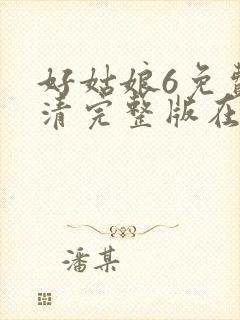 好姑娘6免费
清完整版在
潘某